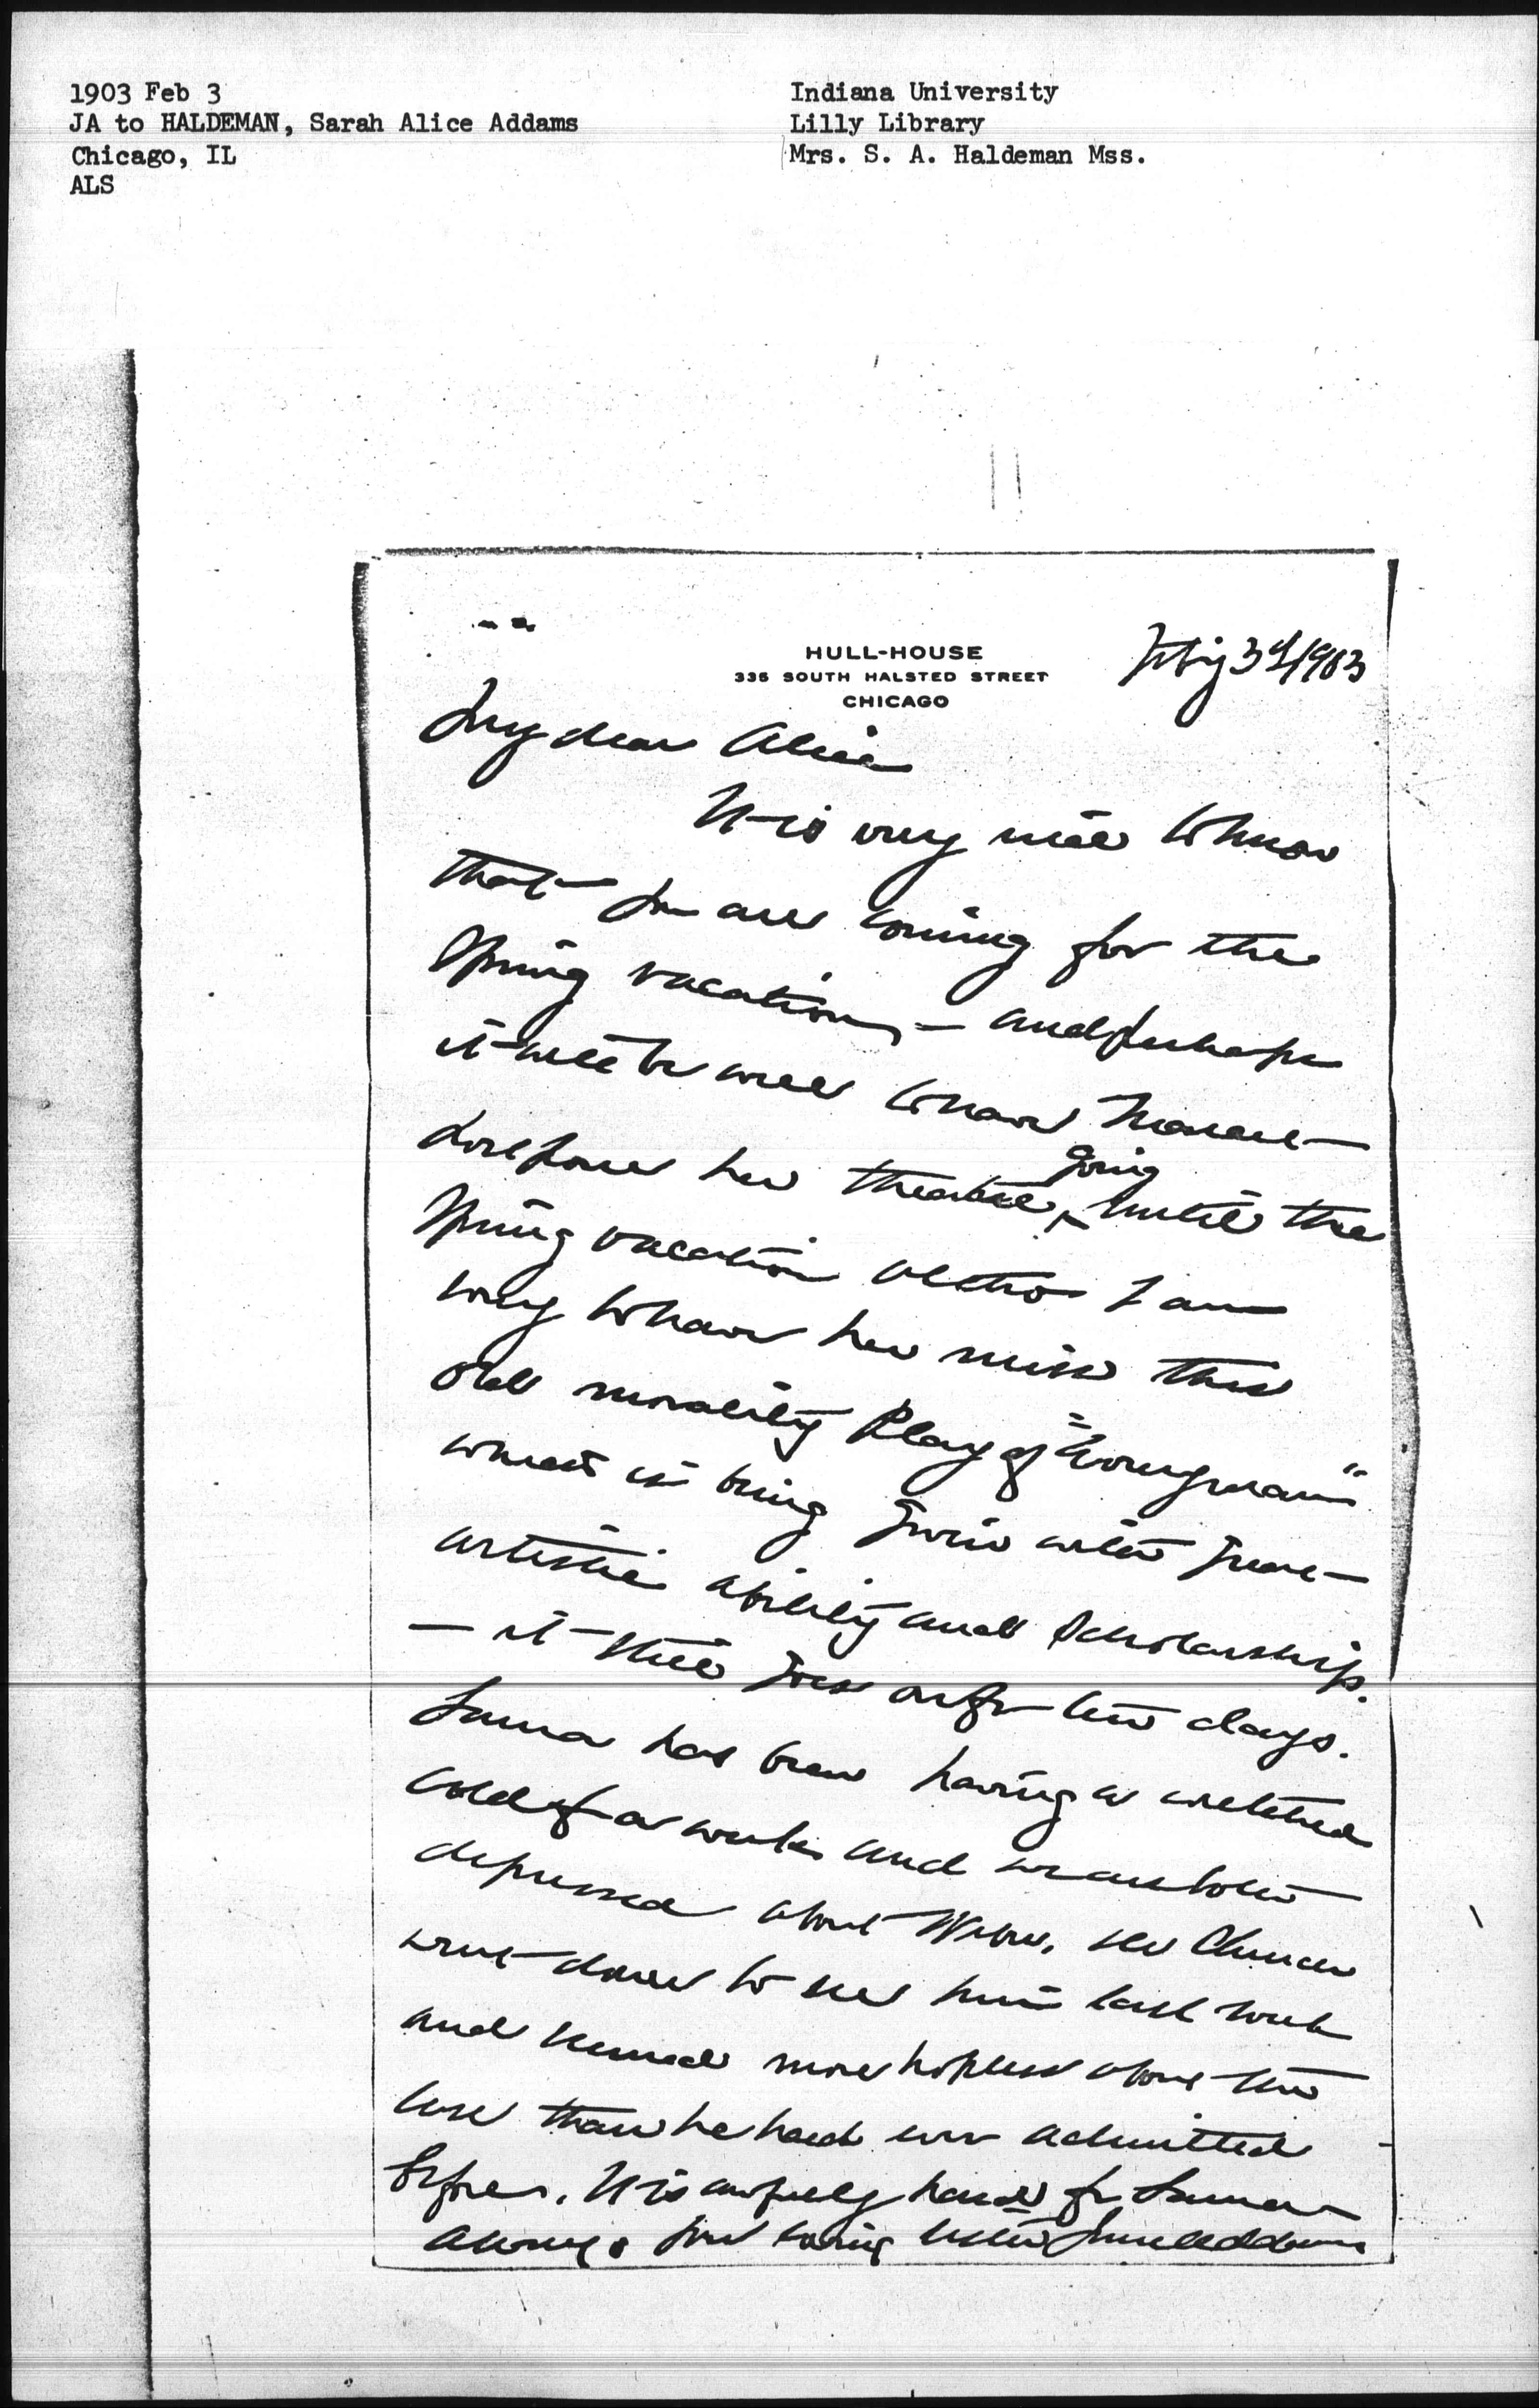 1903 Feb 3
JA to HALDEMAN, Sarah Alice Addams
Chicago, IL
ALS
Indiana University
Lilly Library
Mrs. S. A. Haldeman Mss.
HULL-HOUSE
335 SOUTH HALSTED STREET
CHICAGO
Feb'y 3d/1903
My dear Alice
It is very nice to know
that you are coming for the
Spring vacation, — and perhaps
it will be well to have Marcet
postpone her theatre going until the
Spring vacation altho I am
sorry to have her miss this
old morality Play of "Everyman"
which is being given with great
artistic ability and scholarship.
— it still goes on for ten days.
Laura has been having a wretched
cold for a week and we are both
depressed about Weber. Mr
went down to see him last week
and seemed more hopeless about the
case than he had ever admitted
before. It is awfully hard for Laura
Always your loving sister Jane Addams